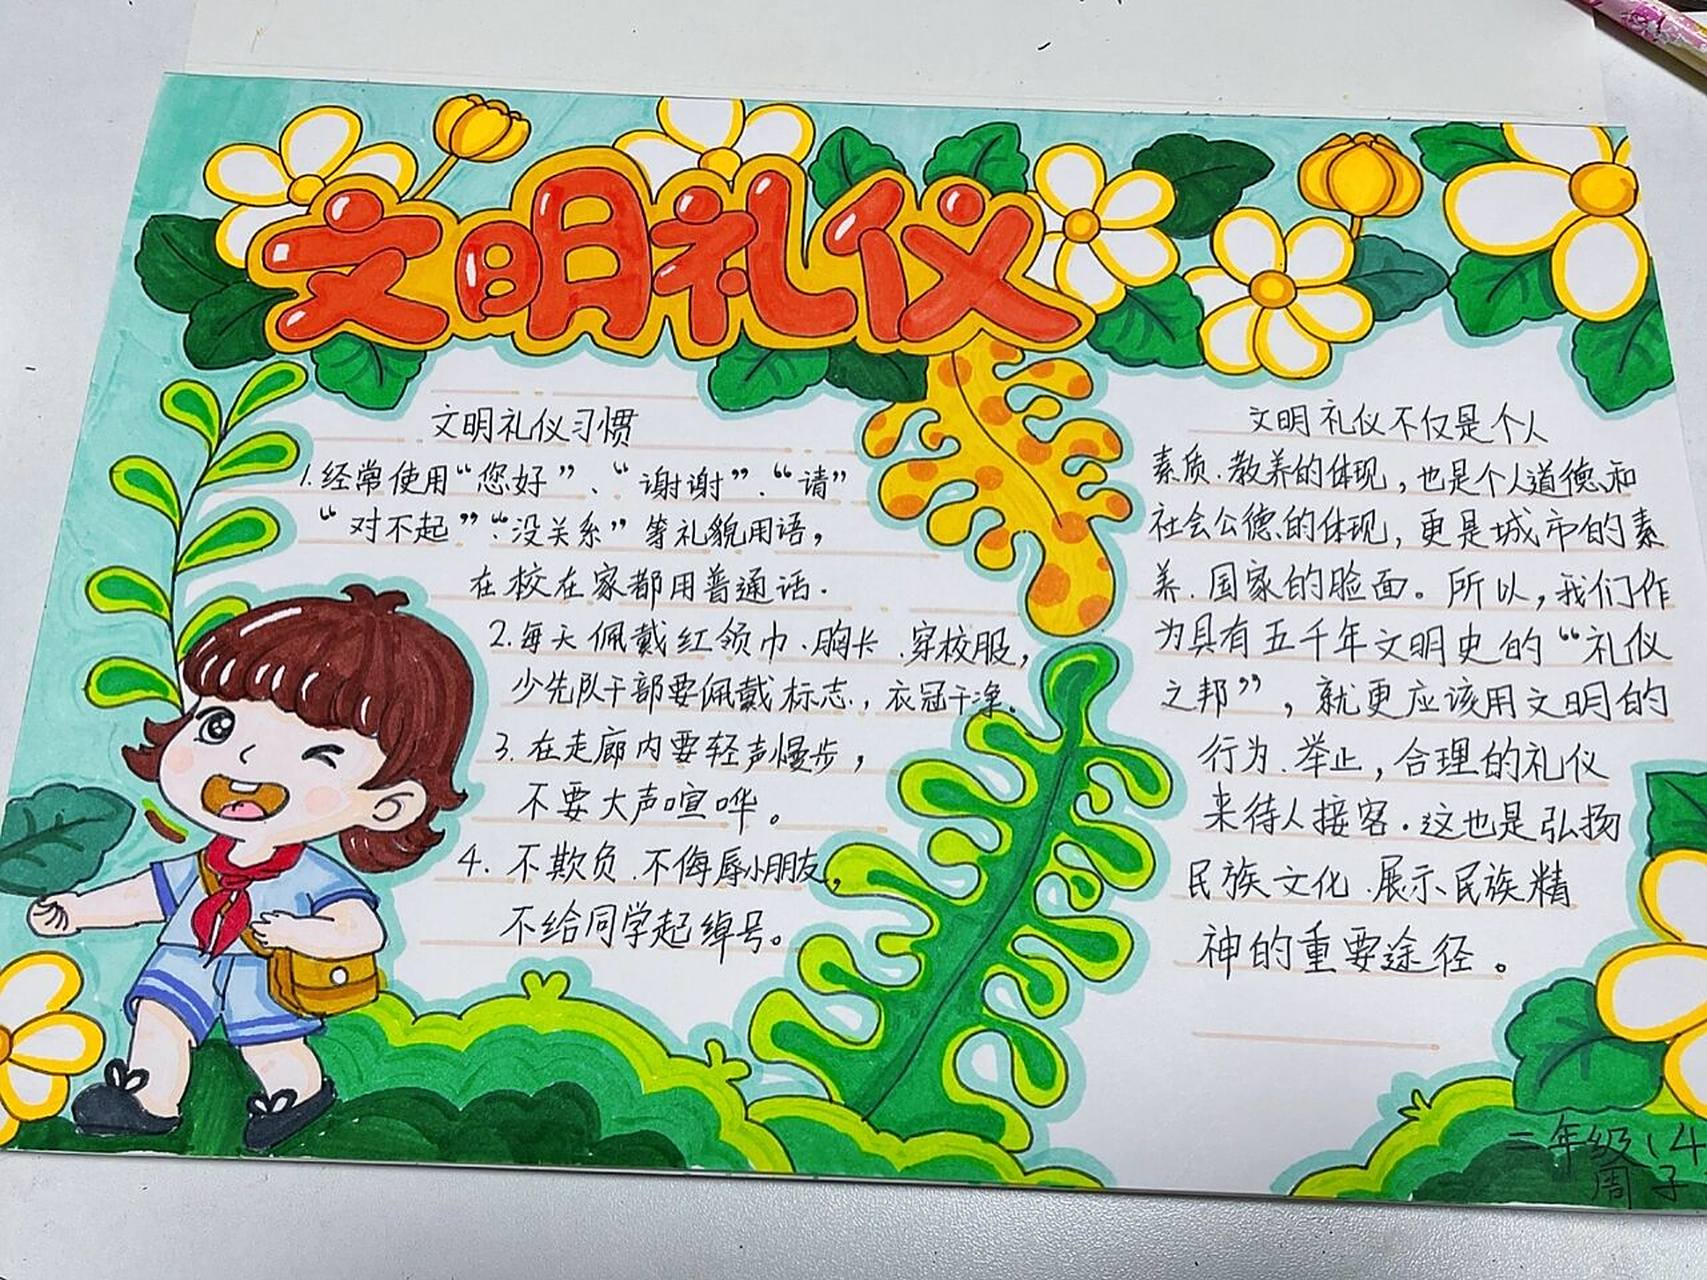 文明礼仪
文明礼仪习惯
1.经常使用“您好”、“谢谢”.“请”
“对不起”“没关系”等礼貌用语，
在校在家都用普通话.
2.每天佩戴红领巾.胸卡.穿校服，
少先队干部要佩戴标志.，衣冠干净。
3.在走廊内要轻声慢步，
不要大声喧哗。
4.不欺负.不侮辱小朋友，
不给同学起绰号。
文明礼仪不仅是个人
素质.教养的体现，也是个人道德和
社会公德的体现，更是城市的素
养.国家的脸面。所以，我们作
为具有五千年文明史的“礼仪
之邦”，就更应该用文明的
行为.举止，合理的礼仪
来待人接客.这也是弘扬
民族文化.展示民族精
神的重要途径。
二年级（4
周子